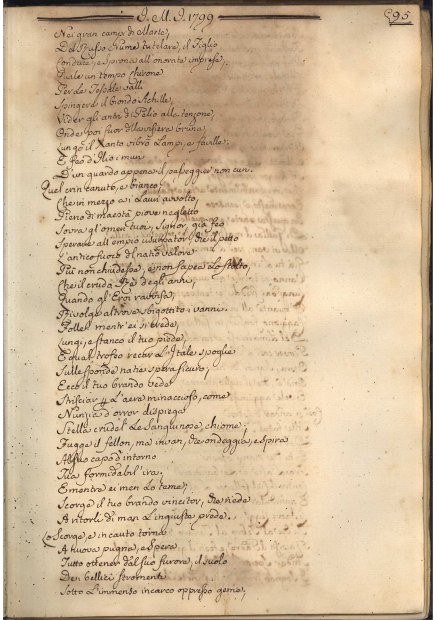 J. M. J. 1799
595
Nei gran campi di Marte,
Del Russo Nume tutelare, il Figlio
Conduce, e sprona all'onorate imprese;
Quale un tempo Chirone
Per le Tessale valli
Spingera il biondo Achille,
Vider gli antri di Pelio alla tenzone,
Onde poi fuor della visiera bruna,
Lungo il Xanto vibrò Lampi, e faville;
E feo d'Ilio i muri
D'un guardo appena il
Quel crin canuto, e bianco
Che in mezzo ai Lauri avvolto
Pieno di maestà piove negletto
Sovra gl'omeri tuoi, Signor, già feo
Sperare all'empio usurpator che il petto
L'antico fuoco del natio valore
Più non chiudesse, e non sapea Lo stolto,
Che il cruda età degli anni,
Quando gl'Eroi
Rivolge altrove sbigottito i vanni.
Folle! mentr'ei si crede,
Lungi e stanco il tuo piede,
E qual trofeo recar L'Itale spoglie
Sulle sponde natie spera sicuro;
Ecco il tuo brando vede
Strisciar p L'aere minaccioso, come
Nunzia d'orror dispiega
Stella crudel Le sanguinose chiome;
Fugge il fellon, ma invan, che ondeggia, e spira
Al suo capo d'intorno
Tua formidabil'ira.
E mentre ei men Lo teme;
Scorge il tuo brando vincitor, che riede
A ritorli di man L'ingiuste prede.
Lo scorge, e incauto torna
A nuova pugna, e spera
Tutto ottener dal suo furore, il suolo
De' bellici stromenti
Sotto L'immenso incarco oppresso geme;